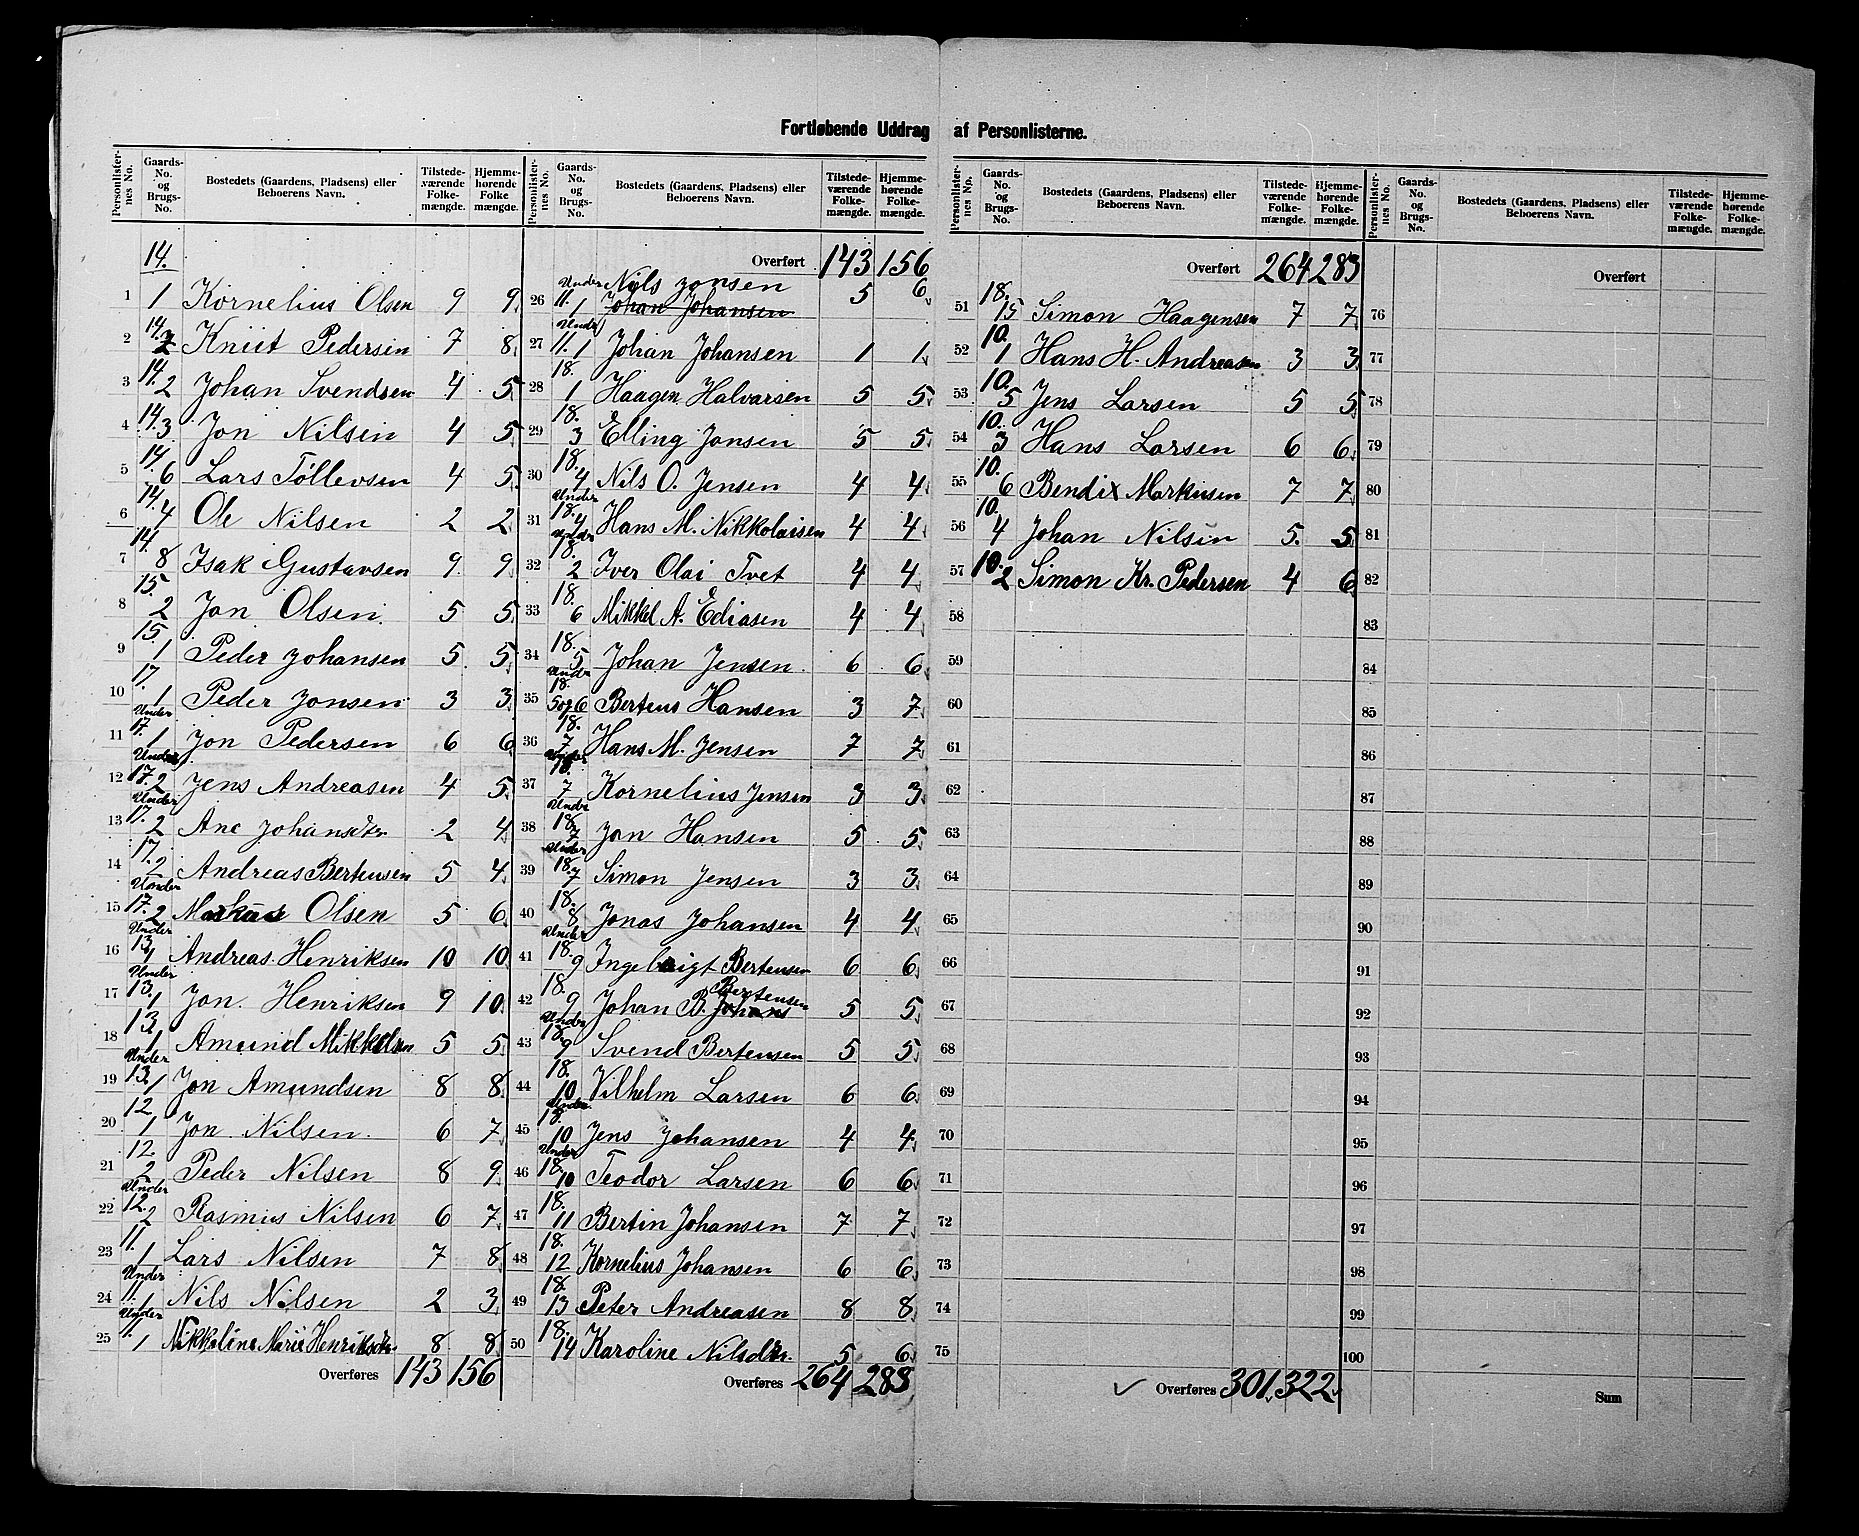 Fortløbende Uddrag af Personlisterne.
Personlisternes No. Gaards-No. og Brugs-No. Bostedets (Gaardens, Pladsens) eller Beboerens Navn. Tilstedeværende Folkemængde. Hjemmehørende Folkemængde.
14.
1 1 Kornelius Olsen 9 9
2 14. 2 Knut Pedersen 7 8
3 14. 2 Johan Svendsen 4 5
4 14. 3 Jon Nilsen 4 5
5 14. 6 Lars Tøllevsen 4 5
6 14. 4 Ole Nilsen 2 2
7 14. 8 Isak Gustavsen 9 9
8 15. 2 Jon Olsen 5 5
9 15. 1 Peder Johansen 5 5
10 17. 1 Peder Jonsen 3 3
11 Under 17. 1 Jon Pedersen 6 6
12 Under 17. 2 Jens Andreasen 4 5
13 Under 17. 2 Ane Johansdtr 2 4
14 17. 2 Andreas Bertensen 5 4
15 Under 17. 2 Markus Olsen 5 6
16 Under 13. 1 Andreas Henriksen 10 10
17 Under 13. 1 Jon Henriksen 9 10
18 13. 1 Amund Mikkelsen 5 5
19 Under 13. 1 Jon Amundsen 8 8
20 12. 1 Jon Nilsen 6 7
21 12. 2 Peder Nilsen 8 9
22 Under 12. 2 Rasmus Nilsen 6 7
23 11. 1 Lars Nilsen 7 8
24 Under 11. 1 Nils Nilsen 2 3
25 Under 11. 1 Nikkoline Marie Henriksdtr. 8 8
Overføres 143 156
Personlisternes No. Gaards-No. og Brugs-No. Bostedets (Gaardens, Pladsens) eller Beboerens Navn. Tilstedeværende Folkemængde. Hjemmehørende Folkemængde.
Overført 143 156
26 Under 11. 1 Nils Jonsen Johan Johansen 5 6
27 Under 11. 1 Johan Johansen 1 1
28 18. 1 Haagen Halvorsen 5 5
29 18. 3 Elling Jonsen 5 5
30 18. 4 Nils O. Jensen 4 4
31 Under 18. 4 Hans M. Nikkolaisen 4 4
32 Under 18. 2 Iver Olai Tvet 4 4
33 18. 6 Mikkel A. Ediasen 4 4
34 18. 5 Johan Jensen 6 6
35 Under 18. 5 og 6 Bertens Hansen 3 7
36 18. 7 Hans M. Jensen 7 7
37 Under 18. 7 Kornelius Jensen 3 3
38 Under 18. 7 Jon Hansen 5 5
39 Under 18. 7 Simon Jensen 3 3
40 18. 8 Jonas Johansen 4 4
41 Under 18. 9 Ingebrigt Bertensen 6 6
42 18. 9 Johan B. Johans Bertensen 5 5
43 Under 18. 9 Svend Bertensen 5 5
44 18. 10 Vilhelm Larsen 6 6
45 Under 18. 10 Jens Johansen 4 4
46 Under 18. 10 Teodor Larsen 6 6
47 18. 11 Bertin Johansen 7 7
48 18. 12 Kornelius Johansen 6 6
49 18. 13 Peter Andreasen 8 8
50 18. 14 Karoline Nilsdtr. 5 6
Overføres 264 283
Personlisternes No. Gaards-No. og Brugs-No. Bostedets (Gaardens, Pladsens) eller Beboerens Navn. Tilstedeværende Folkemængde. Hjemmehørende Folkemængde.
Overført 264 283
51 18. 15 Simon Haagensen 7 7
52 10. 1 Hans H. Andreasen 3 3
53 10. 5 Jens Larsen 5 5
54 10. 3 Hans Larsen 6 6
55 10. 6 Bendix Markusen 7 7
56 10. 4 Johan Nilsen 5 5
57 10. 2 Simon Kr. Pedersen 4 6
58
59
60
61
62
63
64
65
66
67
68
69
70
71
72
73
74
75
✓ Overføres 301 322
Personlisternes No. Gaards-No. og Brugs-No. Bostedets (Gaardens, Pladsens) eller Beboerens Navn. Tilstedeværende Folkemængde. Hjemmehørende Folkemængde.
Overført
76
77
78
79
80
81
82
83
84
85
86
87
88
89
90
91
92
93
94
95
96
97
98
99
100
Sum